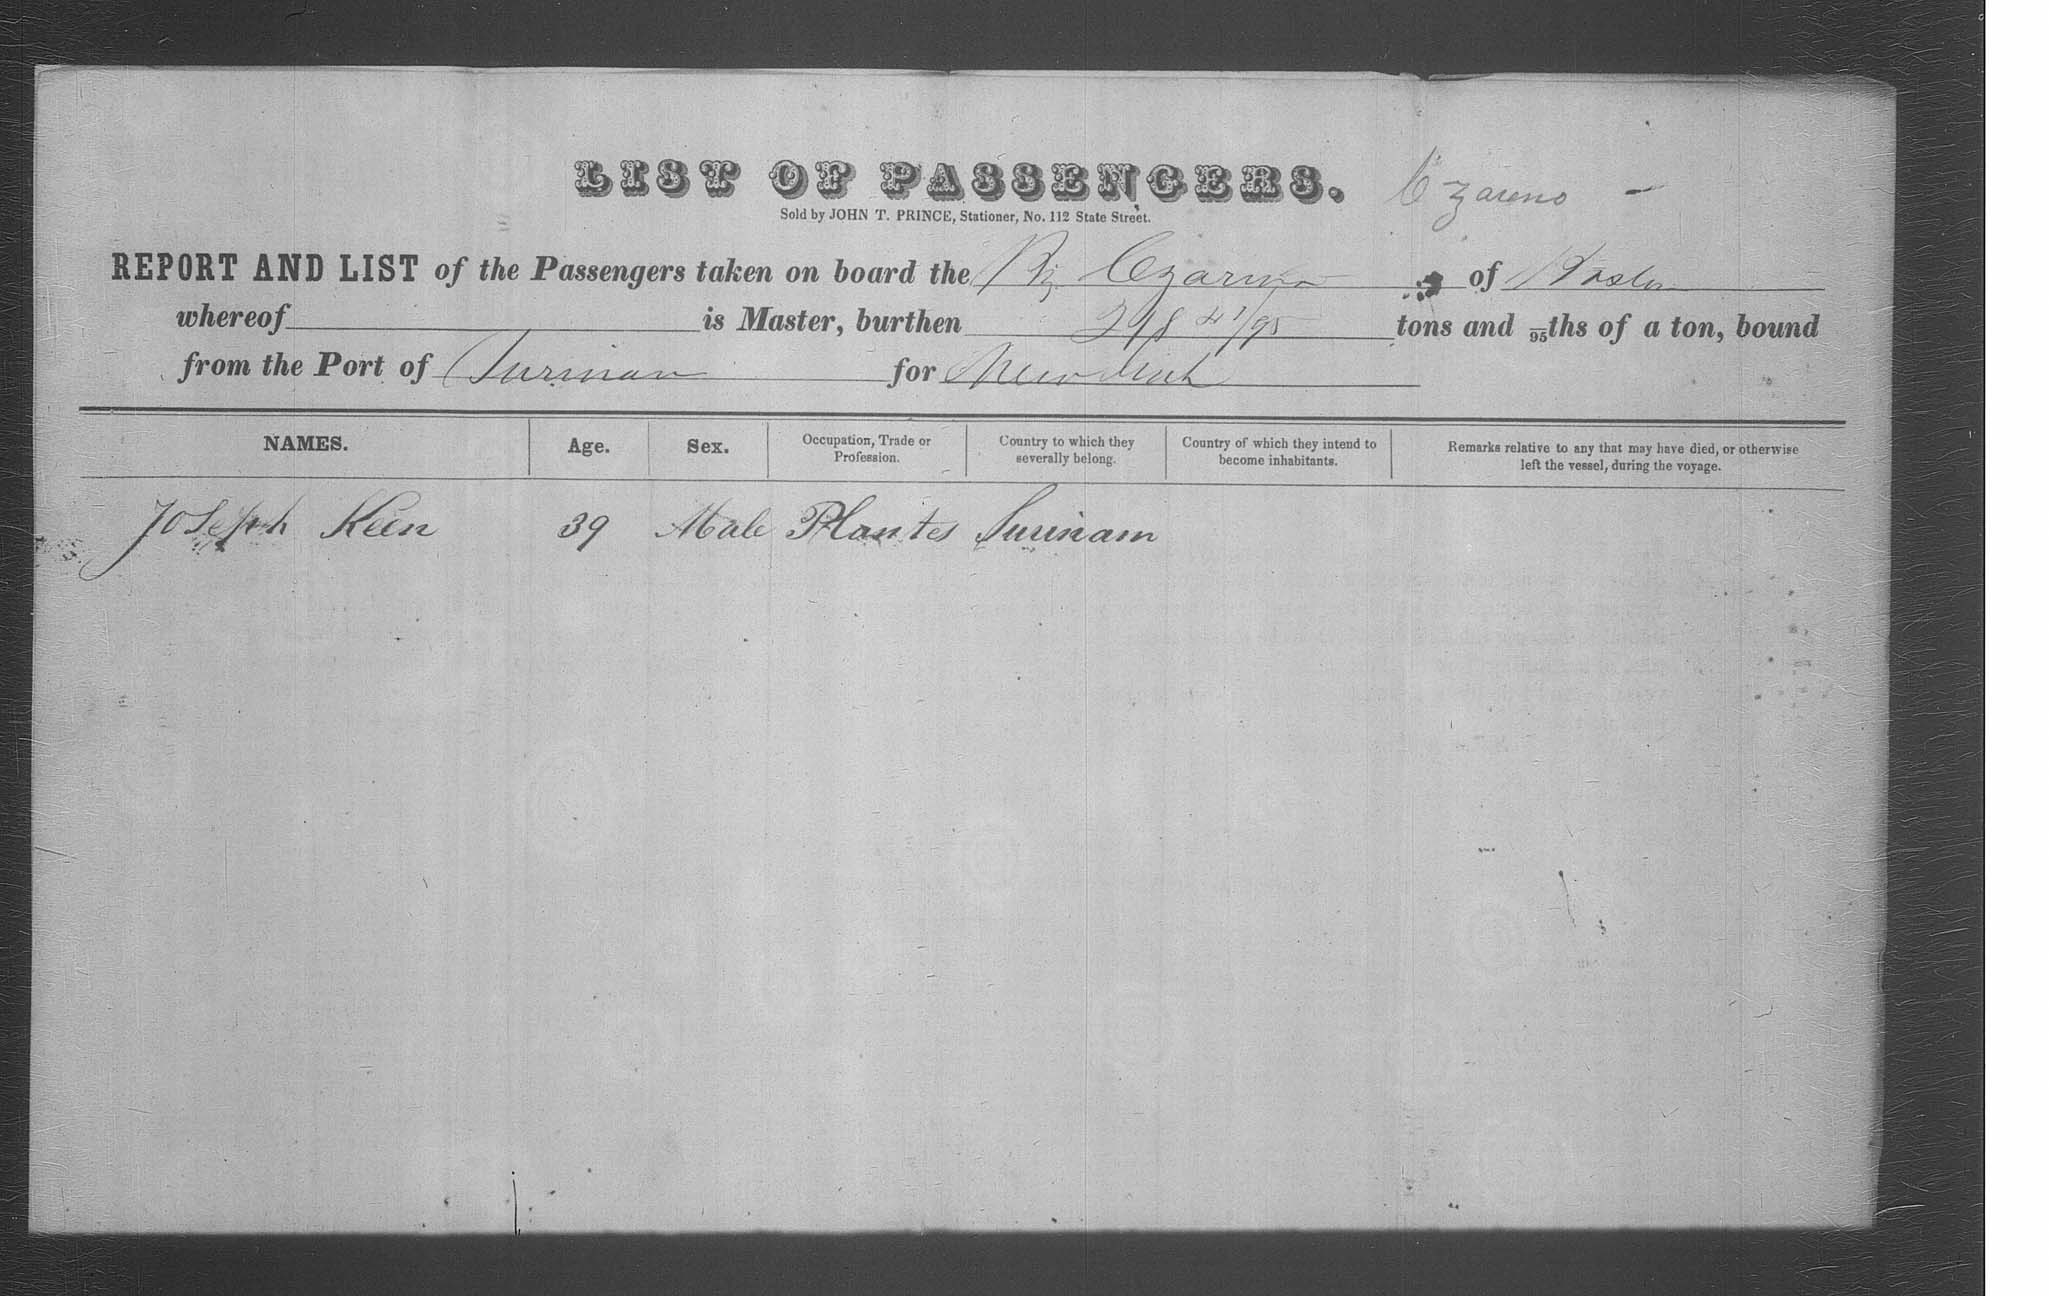 LIST OF PASSENGERS. Czareno -
Sold by JOHN T. PRINCE, Stationer, No. 112 State Street.
REPORT AND LIST of the Passengers taken on board the Brig Czarina of Boston
whereof is Master, burthen 218 41/95 tons and 95ths of a ton, bound
from the Port of Surinam for
NAMES. Age. Sex. Occupation, Trade or Profession. Country to which they severally belong. Country of which they intend to become inhabitants. Remarks relative to any that may have died, or otherwise left the vessel, during the voyage.
Joseph Keen 39 Male Plantes Surinam